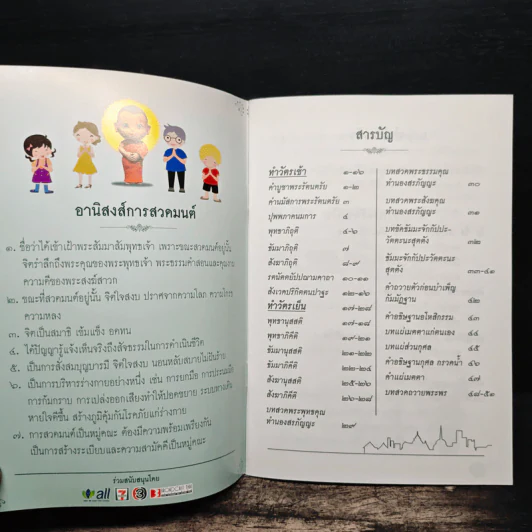 อานิสงส์การสวดมนต์
๑. ชื่อว่าได้เข้าเฝ้าพระสัมมาสัมพุทธเจ้า เพราะขณะสวดมนต์อยู่นั้น
จิตรำลึกถึงพระคุณของพระพุทธเจ้า พระธรรมคำสอนและคุณงาม
ความดีของพระสงฆ์สาวก
๒. ขณะที่สวดมนต์อยู่นั้น จิตใจสงบ ปราศจากความโลภ ความโกรธ
ความหลง
๓. จิตเป็นสมาธิ เข้มแข็ง อดทน
๔. ได้ปัญญารู้แจ้งเห็นจริงถึงสัจธรรมในการดำเนินชีวิต
๕. เป็นการสั่งสมบุญบารมี จิตใจสงบ นอนหลับสบายไม่ฝันร้าย
๖. เป็นการบริหารร่างกายอย่างหนึ่ง เช่น การยกมือ การประนมมือ
การก้มกราบ การเปล่งออกเสียงทำให้ปอดขยาย ระบบทางเดิน
หายใจดีขึ้น สร้างภูมิคุ้มกันโรคภัยแก่ร่างกาย
๗. การสวดมนต์เป็นหมู่คณะ ต้องมีความพร้อมเพรียงกัน
เป็นการสร้างระเบียบและความสามัคคีเป็นหมู่คณะ
ร่วมสนับสนุนโดย
all
7
3
สารบัญ
ทำวัตรเช้า ๑-๑๖
คำบูชาพระรัตนตรัย ๑-๒
คำนมัสการพระรัตนตรัย ๓
ปุพพภาคนมการ ๔
พุทธาภิถุติ ๕-๖
ธัมมาภิถุติ ๗
สังฆาภิถุติ ๘-๙
รตนัตตยัปปณามคาถา ๑๐-๑๑
สังเวคปริกิตตนปาฐะ ๑๒-๑๖
ทำวัตรเย็น ๑๗-๒๘
พุทธานุสสติ ๑๗-๑๘
พุทธาภิคีติ
ธัมมานุสสติ
ธัมมาภิคีติ
สังฆานุสสติ
สังฆาภิคีติ
บทสวดพระพุทธคุณ
ทำนองสรภัญญะ ๒๙
บทสวดพระธรรมคุณ
ทำนองสรภัญญะ ๓๐
บทสวดพระสังฆคุณ
ทำนองสรภัญญะ ๓๑
บทขัดธัมมะจักกัปปะ-
วัตตะนะสุตตัง ๓๒
ธัมมะจักกัปปะวัตตะนะ
สุตตัง ๓๓-๔๑
คำถวายตัวก่อนบำเพ็ญ
กัมมัฏฐาน ๔๒
คำอธิษฐานอโหสิกรรม ๔๓
บทแผ่เมตตาแก่ตนเอง ๔๔
บทแผ่ส่วนกุศล ๔๕
คำอธิษฐานกุศล กรวดน้ำ ๔๖
คำแผ่เมตตา ๔๗
บทสวดถวายพรพระ ๔๘-๕๑